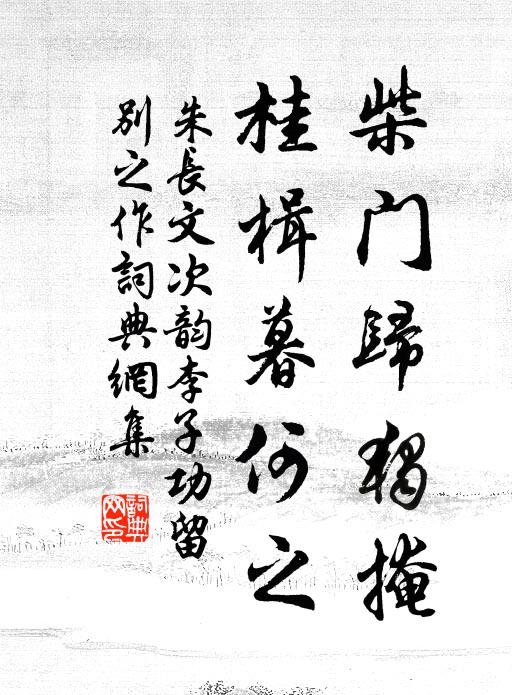 柴门歸獨掩
桂楫暮何之
朱長文次韵李子功留
别之作詞典網集
詞典网印